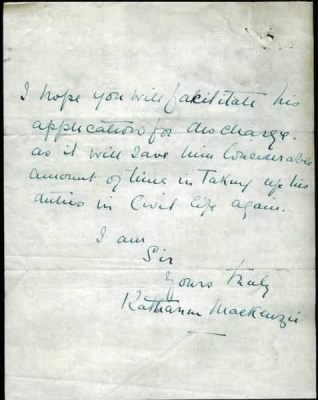 I hope you will facilitate his
application for discharge.
as it will save him Considerable
amount of time in taking up his
duties in Civil life again.
I am
Sir
Yours truly
Katharine MacKenzie